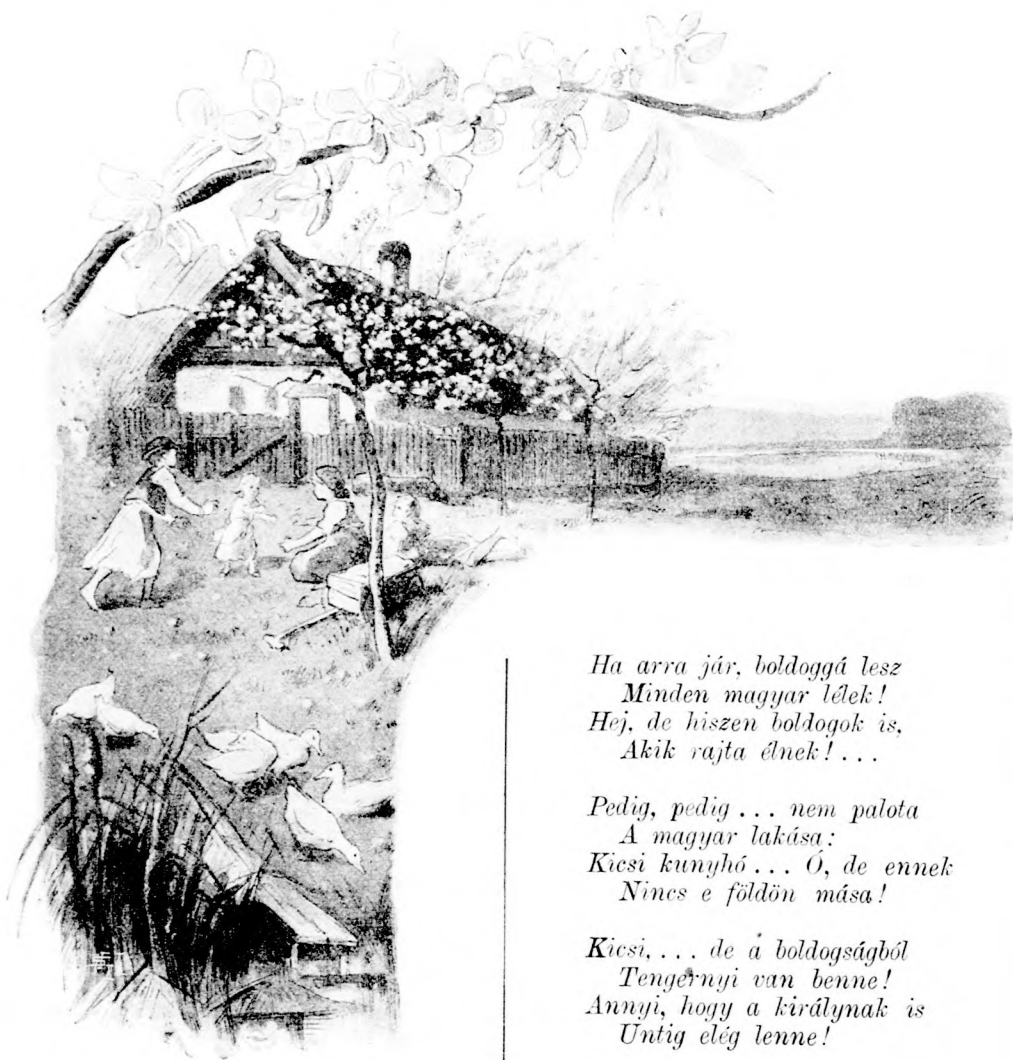 Ha arra jár, boldoggá lesz
Minden magyar lélek!
Hej, de hiszen boldogok is,
Akik rajta élnek! . . .

Pedig, pedig . . . nem palota
A magyar lakása:
Kicsi kunyhó . . . Ó, de ennek
Nincs e földön mása!

Kicsi, . . . de a boldogságból
Tengernyi van benne!
Annyi, hogy a királynak is
Untig elég lenne!